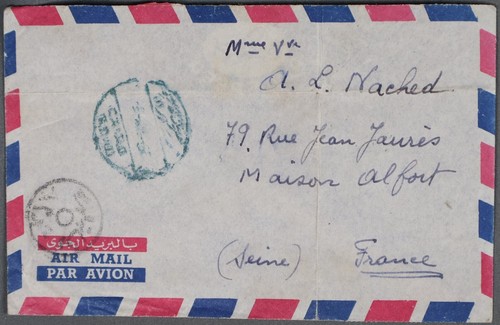 Mme Vve
A. L. Nached
79, Rue Jean Jaurès
Maison Alfort
(Seine) France
بالبريد الجوى
AIR MAIL
PAR AVION